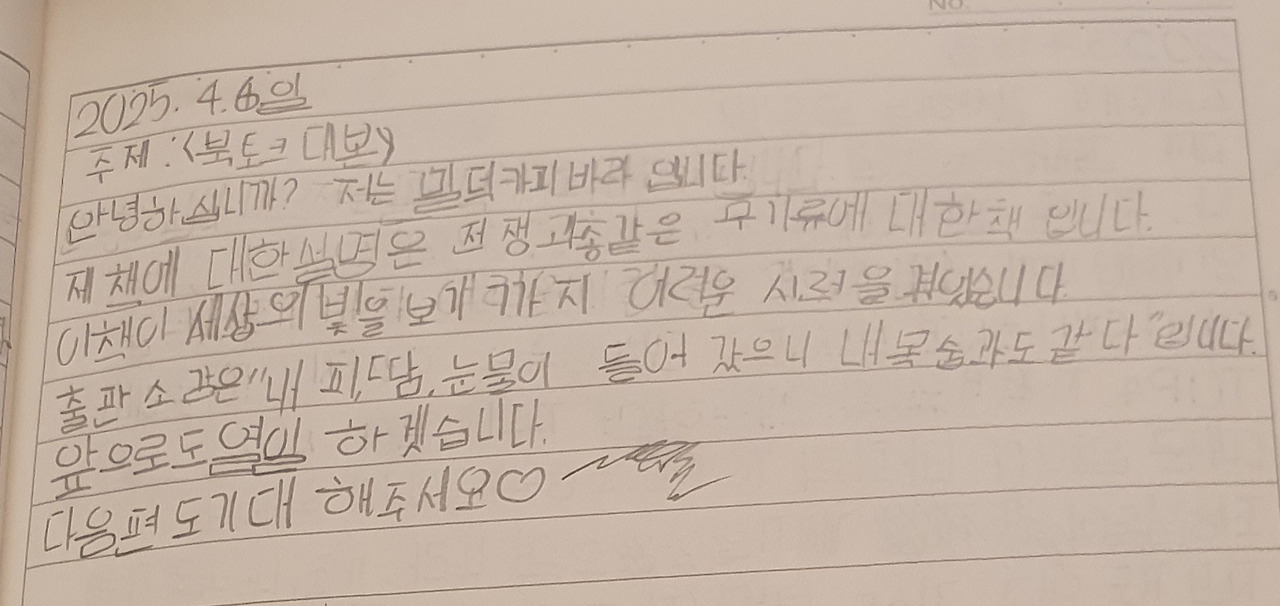 2025. 4. 6일
주제 : <북토크 대본>
안녕하십니까? 저는 밀덕카피바라 입니다.
제 책에 대한설명은 전쟁 같은 무기류에 대한책 입니다.
이책이 세상의 빛을 보기 까지 어려운 시련을 겪었습니다
출판 소감은 "내 피, 땀, 눈물이 들어 갔으니 내목숨과도 같다"입니다.
앞으로도 열일 하겠습니다.
다음편 도기대 해주세요♡